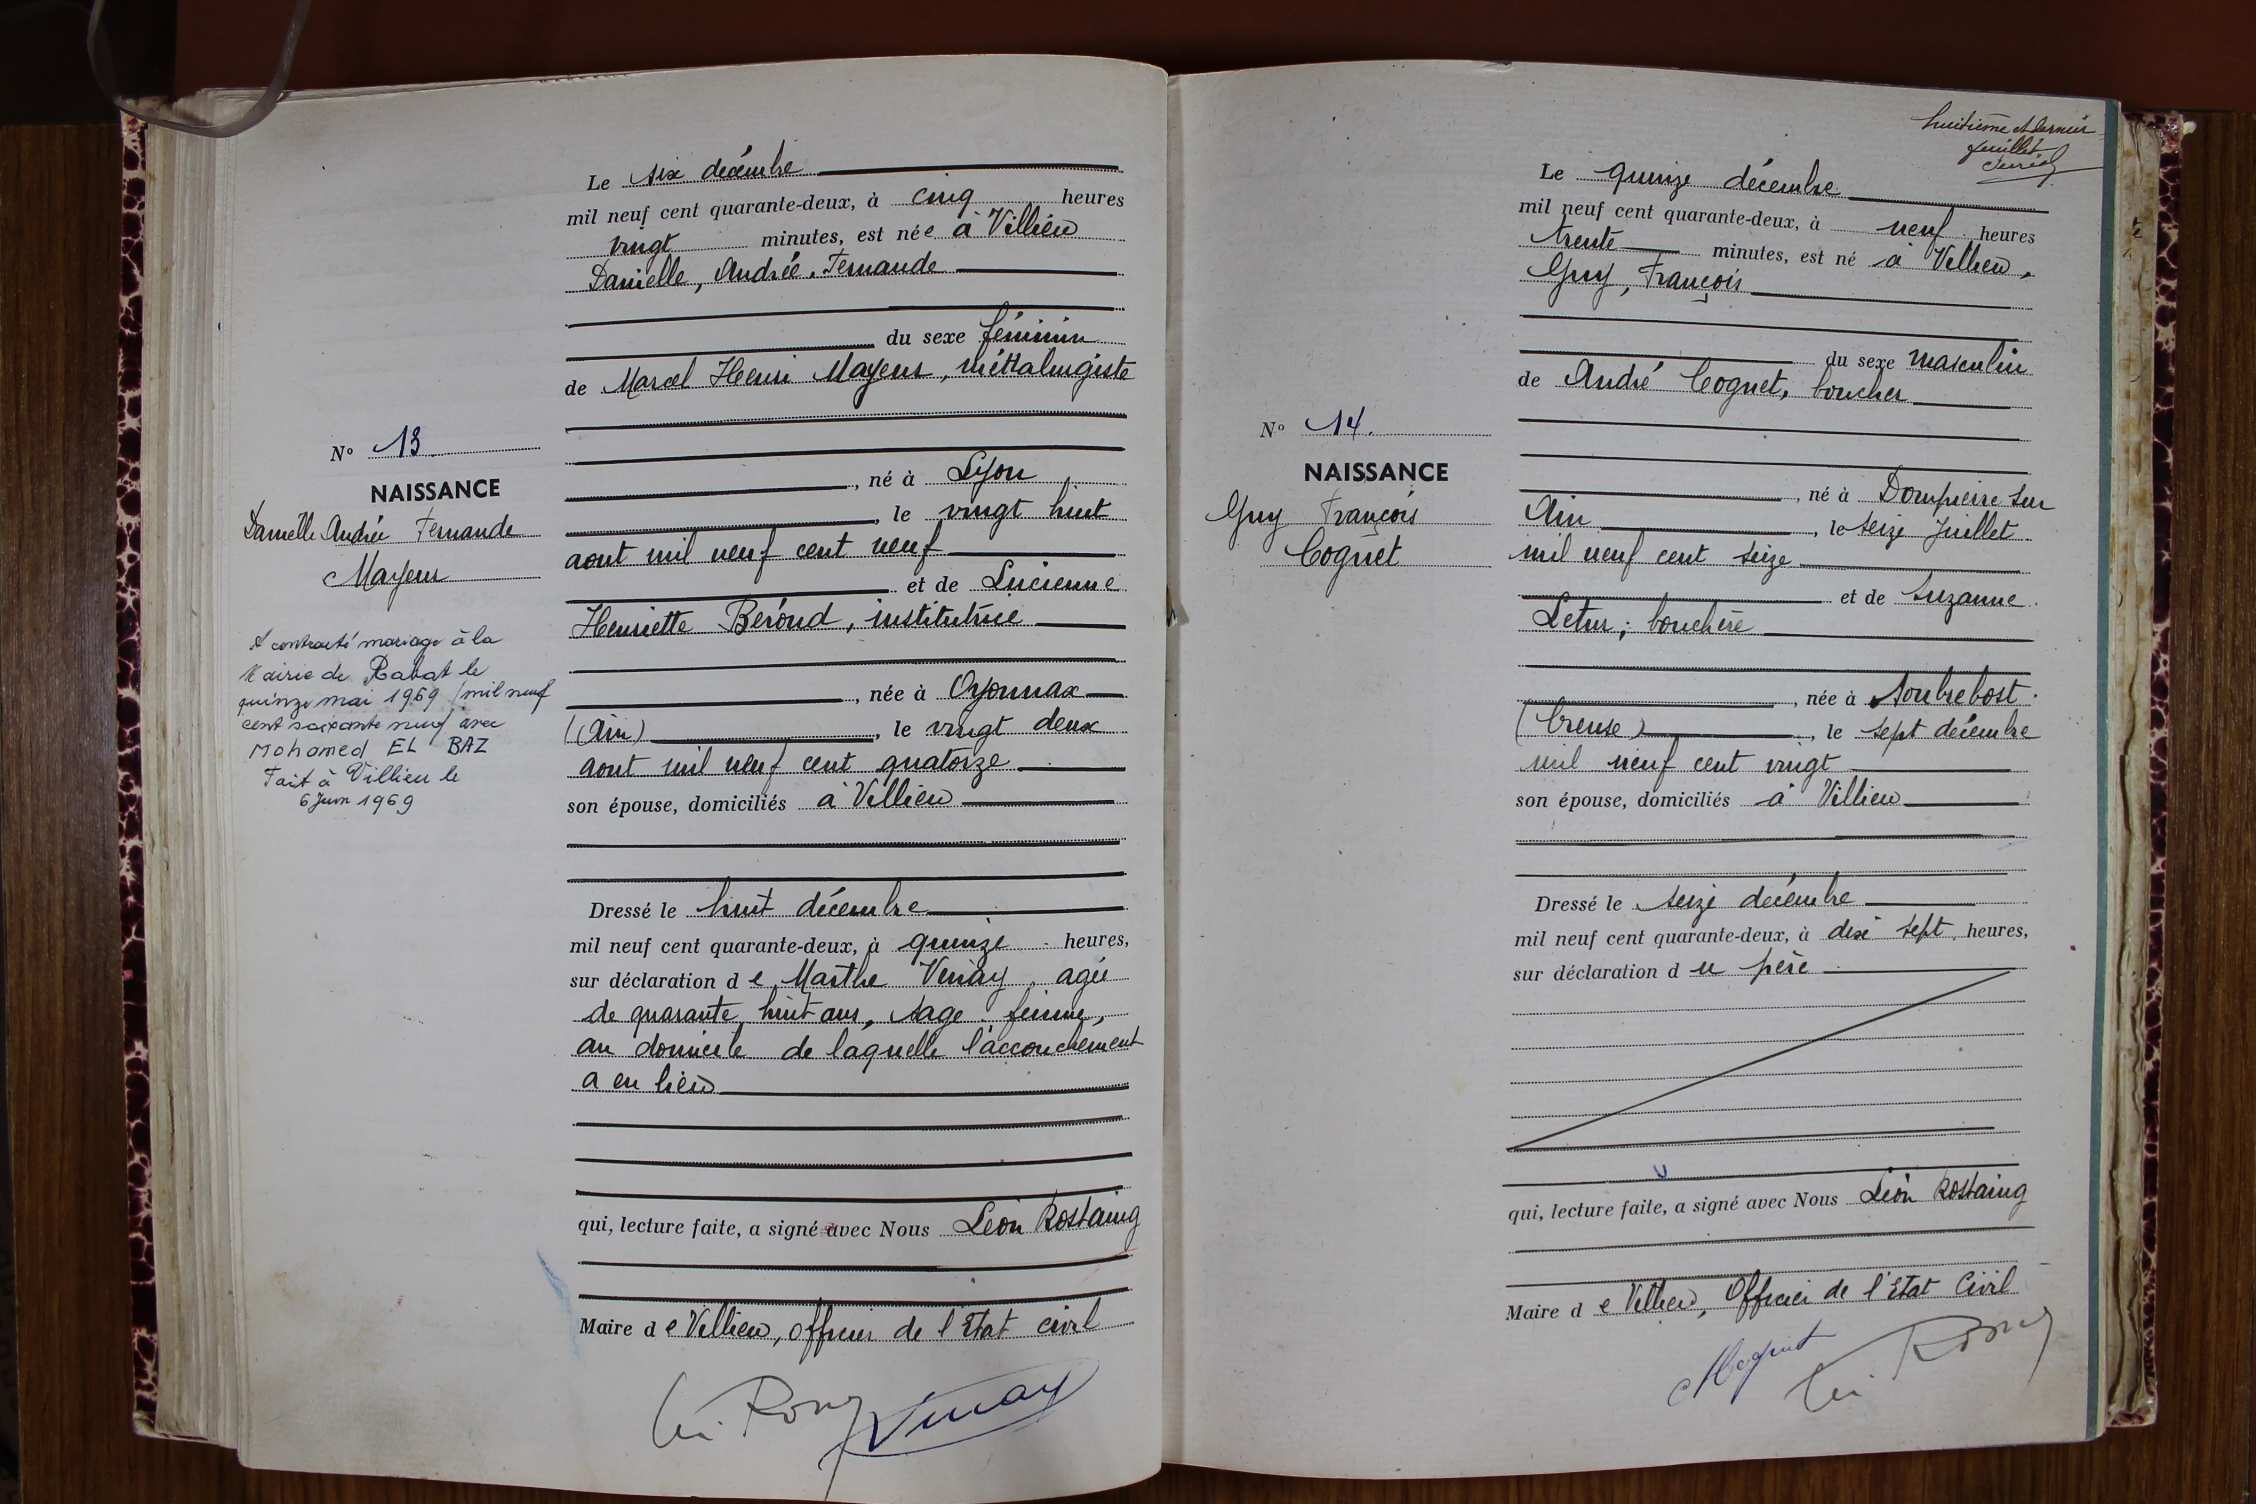 Le six décembre
mil neuf cent quarante-deux, à cinq heures
vingt minutes, est née à Villieu
Danielle, Andrée, Fernande
du sexe féminin
de Marcel Henri Mayeur, métallurgiste
né à Lyon
, le vingt huit
aout mil neuf cent neuf
et de Lucienne
Henriette Beroud, institutrice
, née à Oyonnax
(Ain) , le vingt deux
aout mil neuf cent quatorze
son épouse, domiciliés à Villieu
Dressé le huit décembre
mil neuf cent quarante-deux, à quinze heures,
sur déclaration de Marthe Vinay agée
de quarante huit ans, sage-femme,
au domicile de laquelle l'accouchement
a eu lieu
qui, lecture faite, a signé avec Nous Léon Rostaing
Maire de Villieu, officier de l'Etat civil
Vinay
No 13
NAISSANCE
Danielle Andrée Fernande
Mayeur
A contracté mariage à la
Mairie de Rabat le
quinze mai 1969 (mil neuf
cent soixante neuf avec
Mohamed EL BAZ
Fait à Villieu le
6 Juin 1969
huitième et dernier
feuillet
Le quinze décembre
mil neuf cent quarante-deux, à neuf heures
trente minutes, est né à Villieu,
Guy, François
du sexe masculin
de André Cognet, boucher
, né à Dompierre sur
Ain , le seize Juillet
mil neuf cent seize
et de Suzanne
Letur, bouchère
, née à Soubrebost
(Creuse) , le sept décembre
mil neuf cent vingt
son épouse, domiciliés à Villieu
Dressé le seize décembre
mil neuf cent quarante-deux, à dix sept heures,
sur déclaration du père
qui, lecture faite, a signé avec Nous Léon Rostaing
Maire de Villieu, Officier de l'Etat Civil
Cognet
No 14.
NAISSANCE
Guy François
Cognet